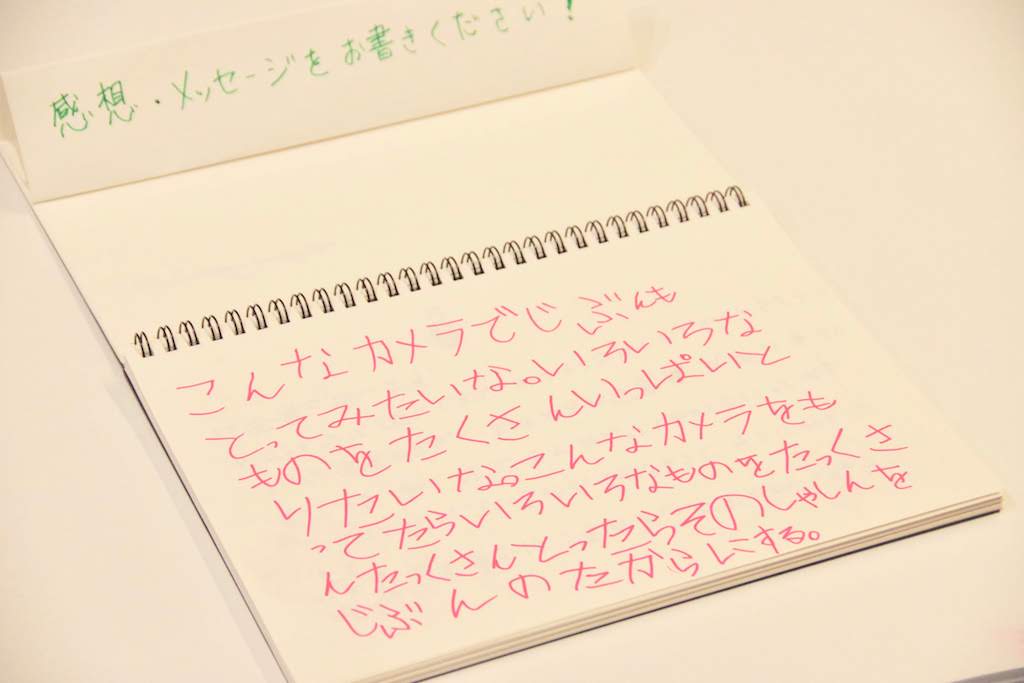 感想・メッセージをお書きください!
こんなカメラでじぶんも
とってみたいな。いろいろな
ものをたくさんいっぱいと
りたいな。こんなカメラをも
ってたらいろいろなものをたっくさ
んたっくさんとったらそのしゃしんを
じぶんのたからにする。